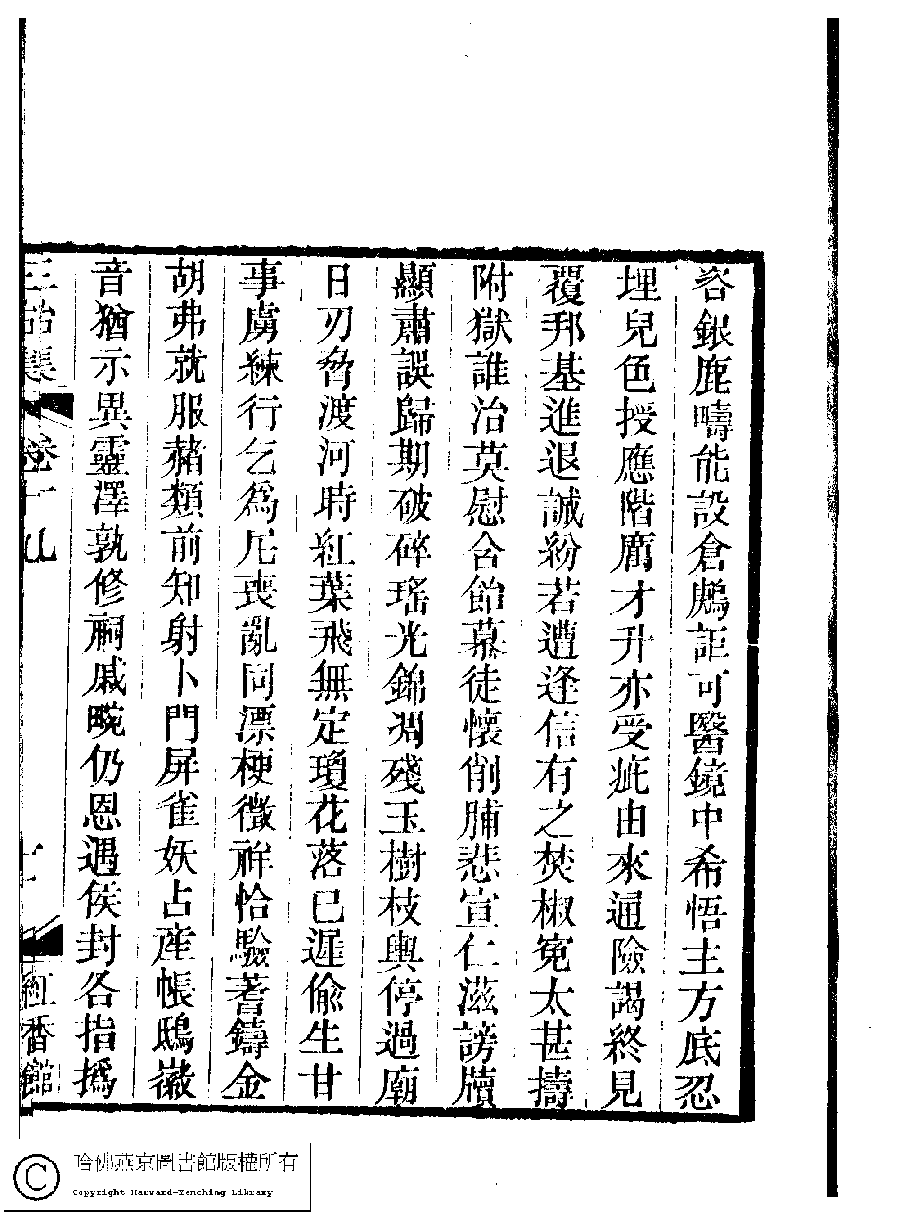 咨銀鹿疇能設倉鷉詎可醫鏡中希悟主方底忍
埋兒色授應階厲才升亦受疵由來通險謁終見
覆邦基進退誠紛若遭逢信有之焚椒冤太甚擣
附獄誰治莫慰含飴慕徒懷削脯悲宣仁滋謗牘
顯肅誤歸期破碎瑤光錦凋殘玉樹枝輿停過廟
日刃脅渡河時紅葉飛無定瓊花落已遲偸生甘
事虜練行乞爲尼喪亂同漂梗徵祥恰驗蓍鑄金
胡弗就服赭類前知射卜門屏雀妖占產帳鴟徽
音猶示異靈澤孰修祠戚畹仍恩遇侯封各指撝
卷十
紅香館
哈佛燕京圖書館版權所有
Copyright Harvard-Yenching Library